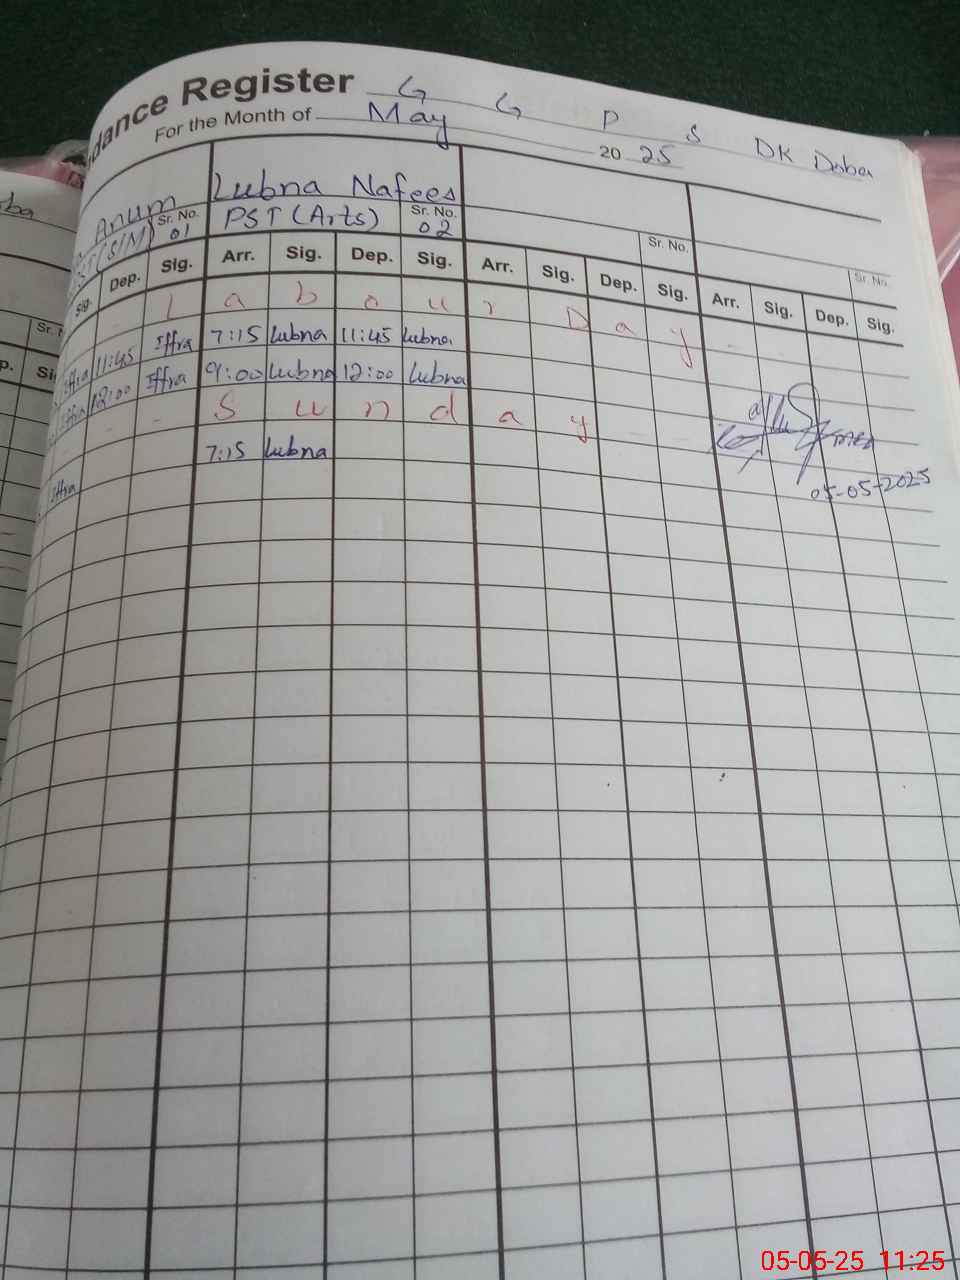 dance Register G G P S DK Doba
For the Month of May 20 25
ba
Anum Lubna Nafees
PST(S/M) Sr. No. 01 PST (Arts) Sr. No. 02 Sr. No. Sr. No.
Sig. Dep. Sig. Arr. Sig. Dep. Sig. Arr. Sig. Dep. Sig. Arr. Sig. Dep. Sig.
Labour Day
Iffra 11:45 Iffra 7:15 Lubna 11:45 Lubna
Iffra 12:00 Iffra 9:00 Lubna 12:00 Lubna
Sunday
Iffra 7:15 Lubna
05-05-2025
05-05-25 11:25